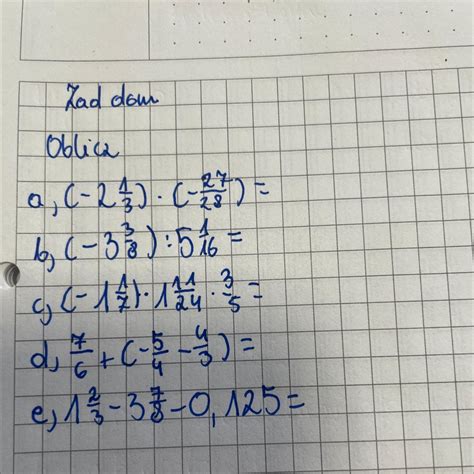 Zad dom
Oblicz
a, (-2 1/3) · (-27/28) =
b, (-3 3/8) : 5 1/16 =
c, (-1 1/7) · 1 11/24 · 3/5 =
d, 7/6 + (-5/4 - 4/3) =
e, 1 2/3 - 3 7/8 - 0,125 =